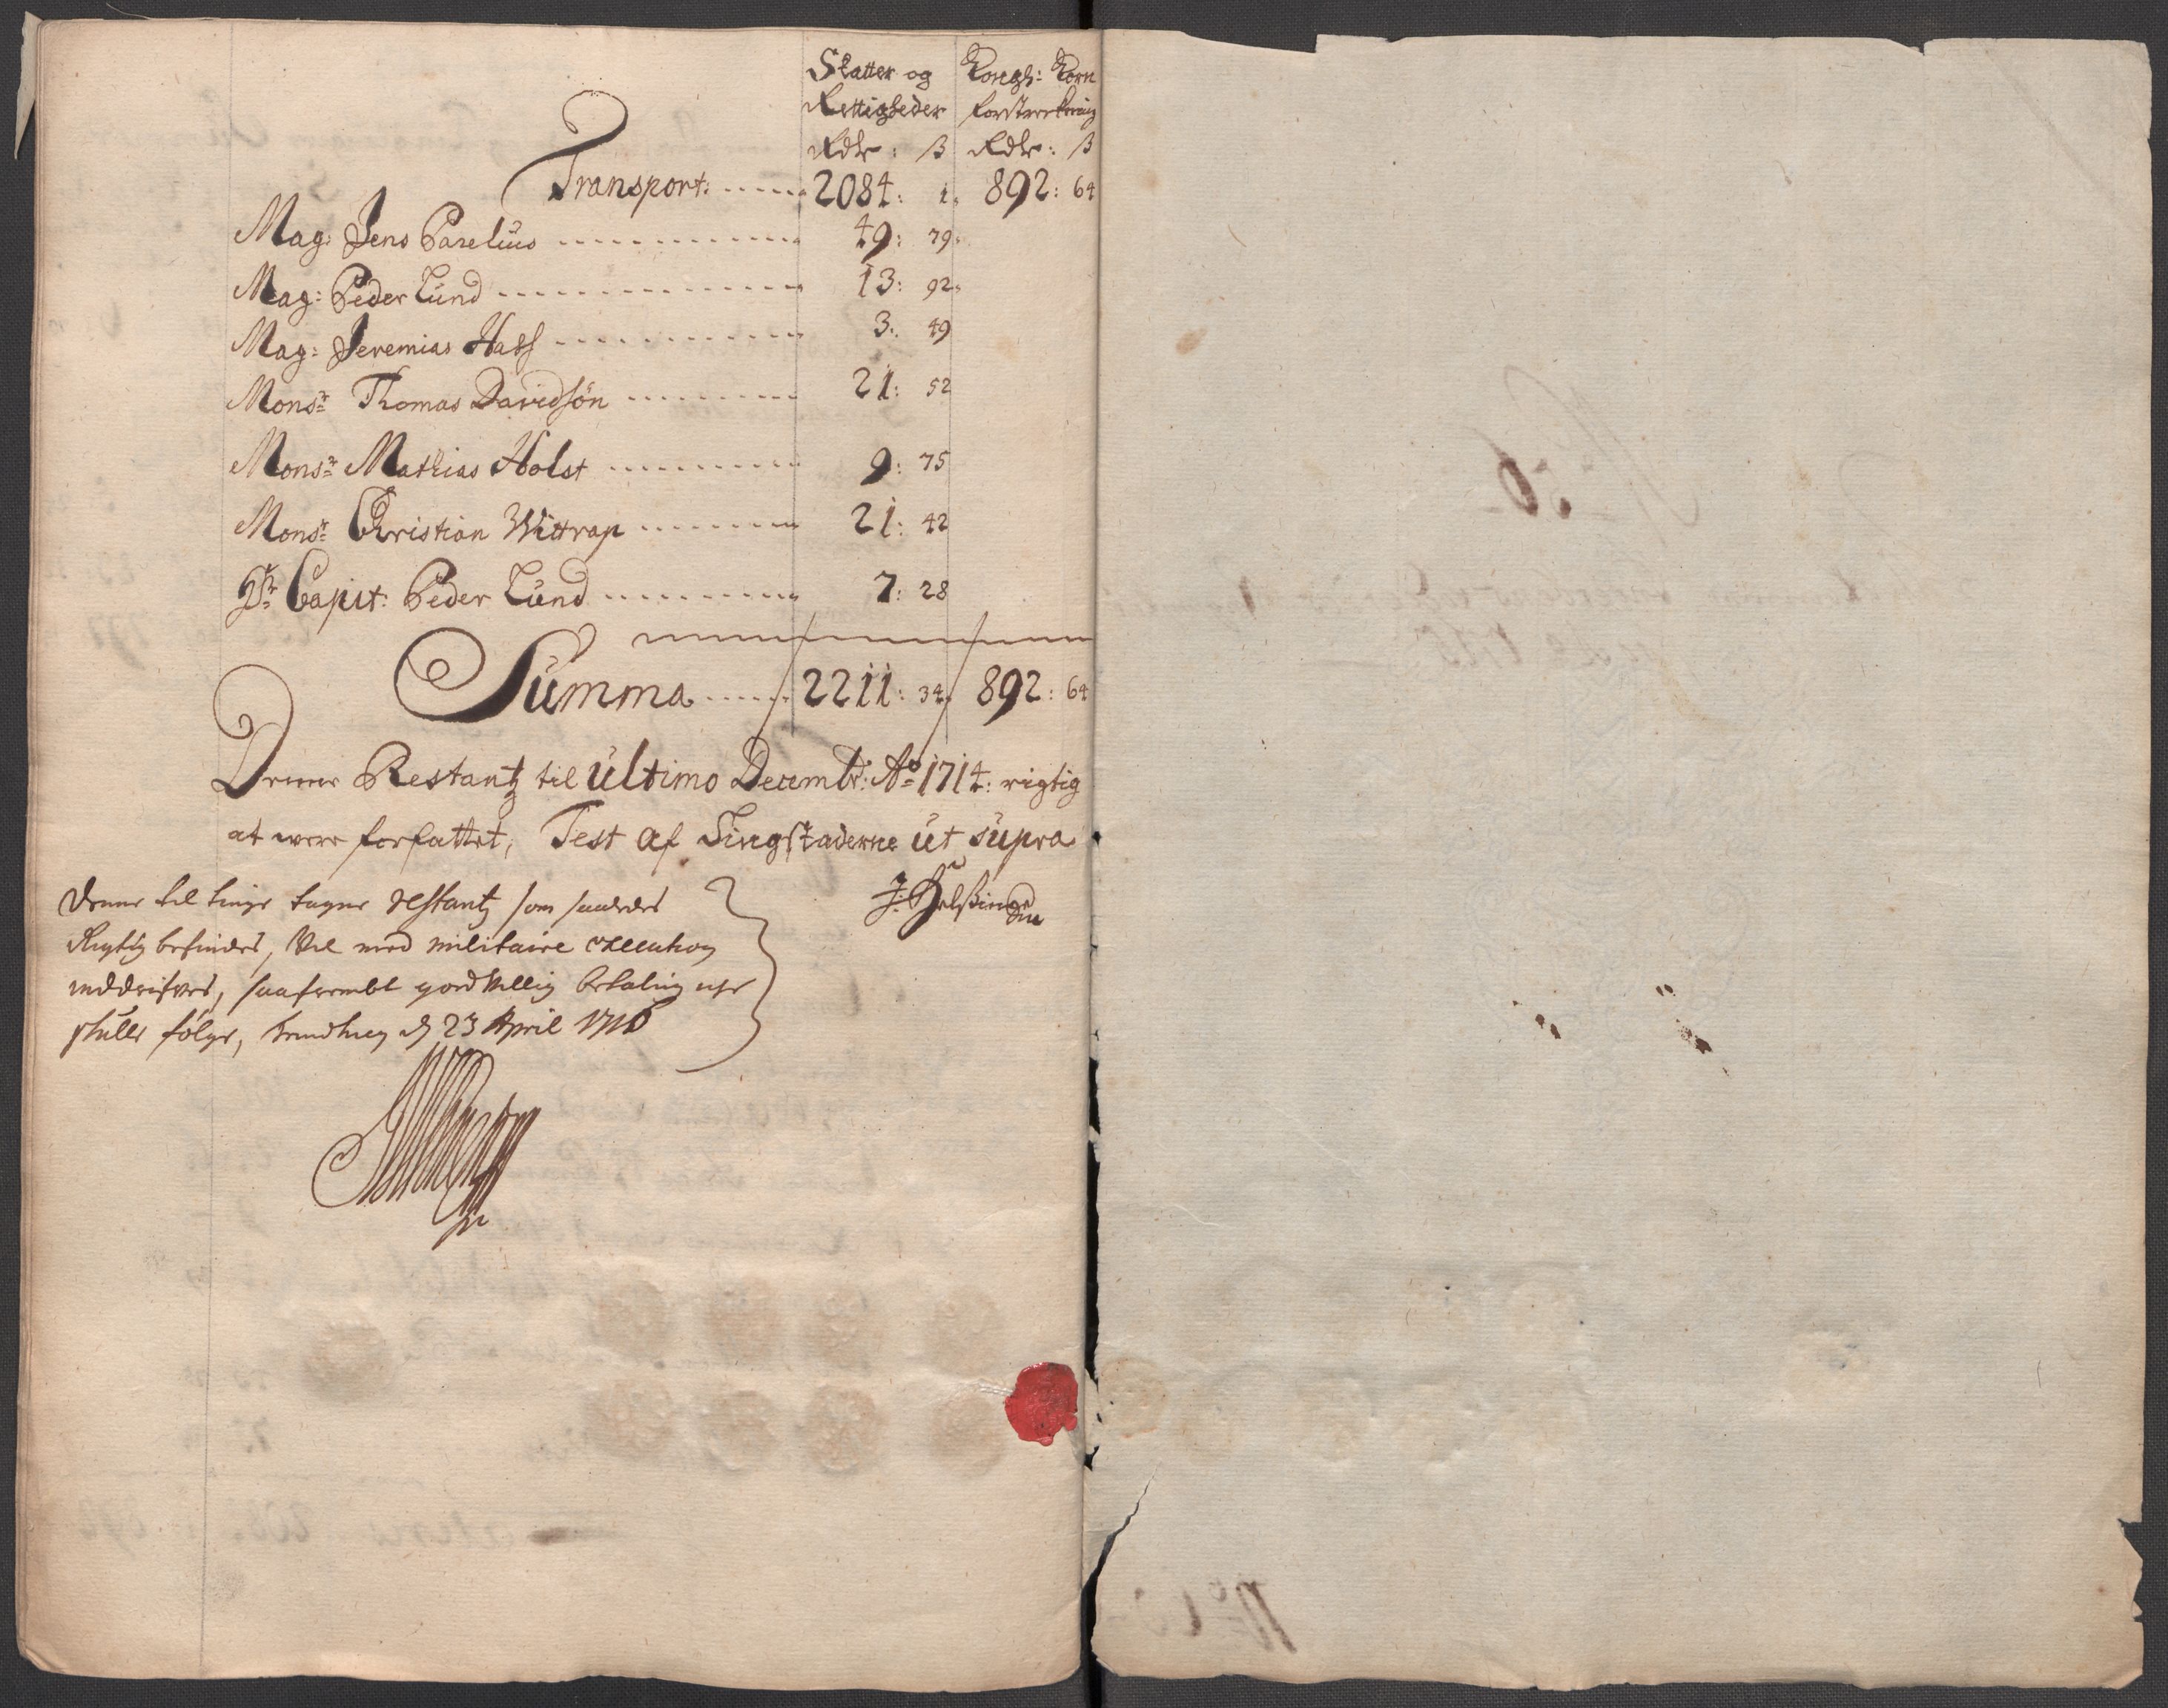 Skatter og Kongl: Korn
Rettigheder forstrækning
Rdlr: ß Rdlr: ß
Transport: 2084: 1 892: 64
Mag: Jens Parelius 49: 79
Mag: Peder Lund 13: 92
Mag: Jeremias Hass 3: 49
Monsr: Thomas Davidsön 21: 52
Monsr: Mathias Holst 9: 75
Monsr: Christian Wittrup 21: 42
Hr: Capit: Peder Lund 7: 28
Summa 2211: 34 892: 64
Denne Restantz til ultimo Decembr: Ao 1714: rigtig
at være forfattet, Test af Tingstæderne ut supra
Denne til tinge tagne restantz som saaledes
Rigtig befindes, Vil med militaire execution
inddrifves, saafremt godvillig betaling iche
skulle følge, d 23 April 1716
No 6